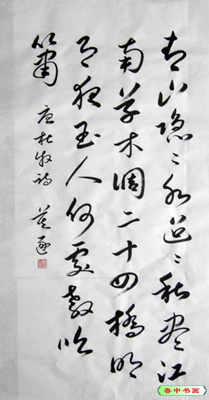 青山隐々水迢々秋尽江
南草木凋二十四橋明
月夜玉人何處教吹
箫
唐杜牧詩
春中书画